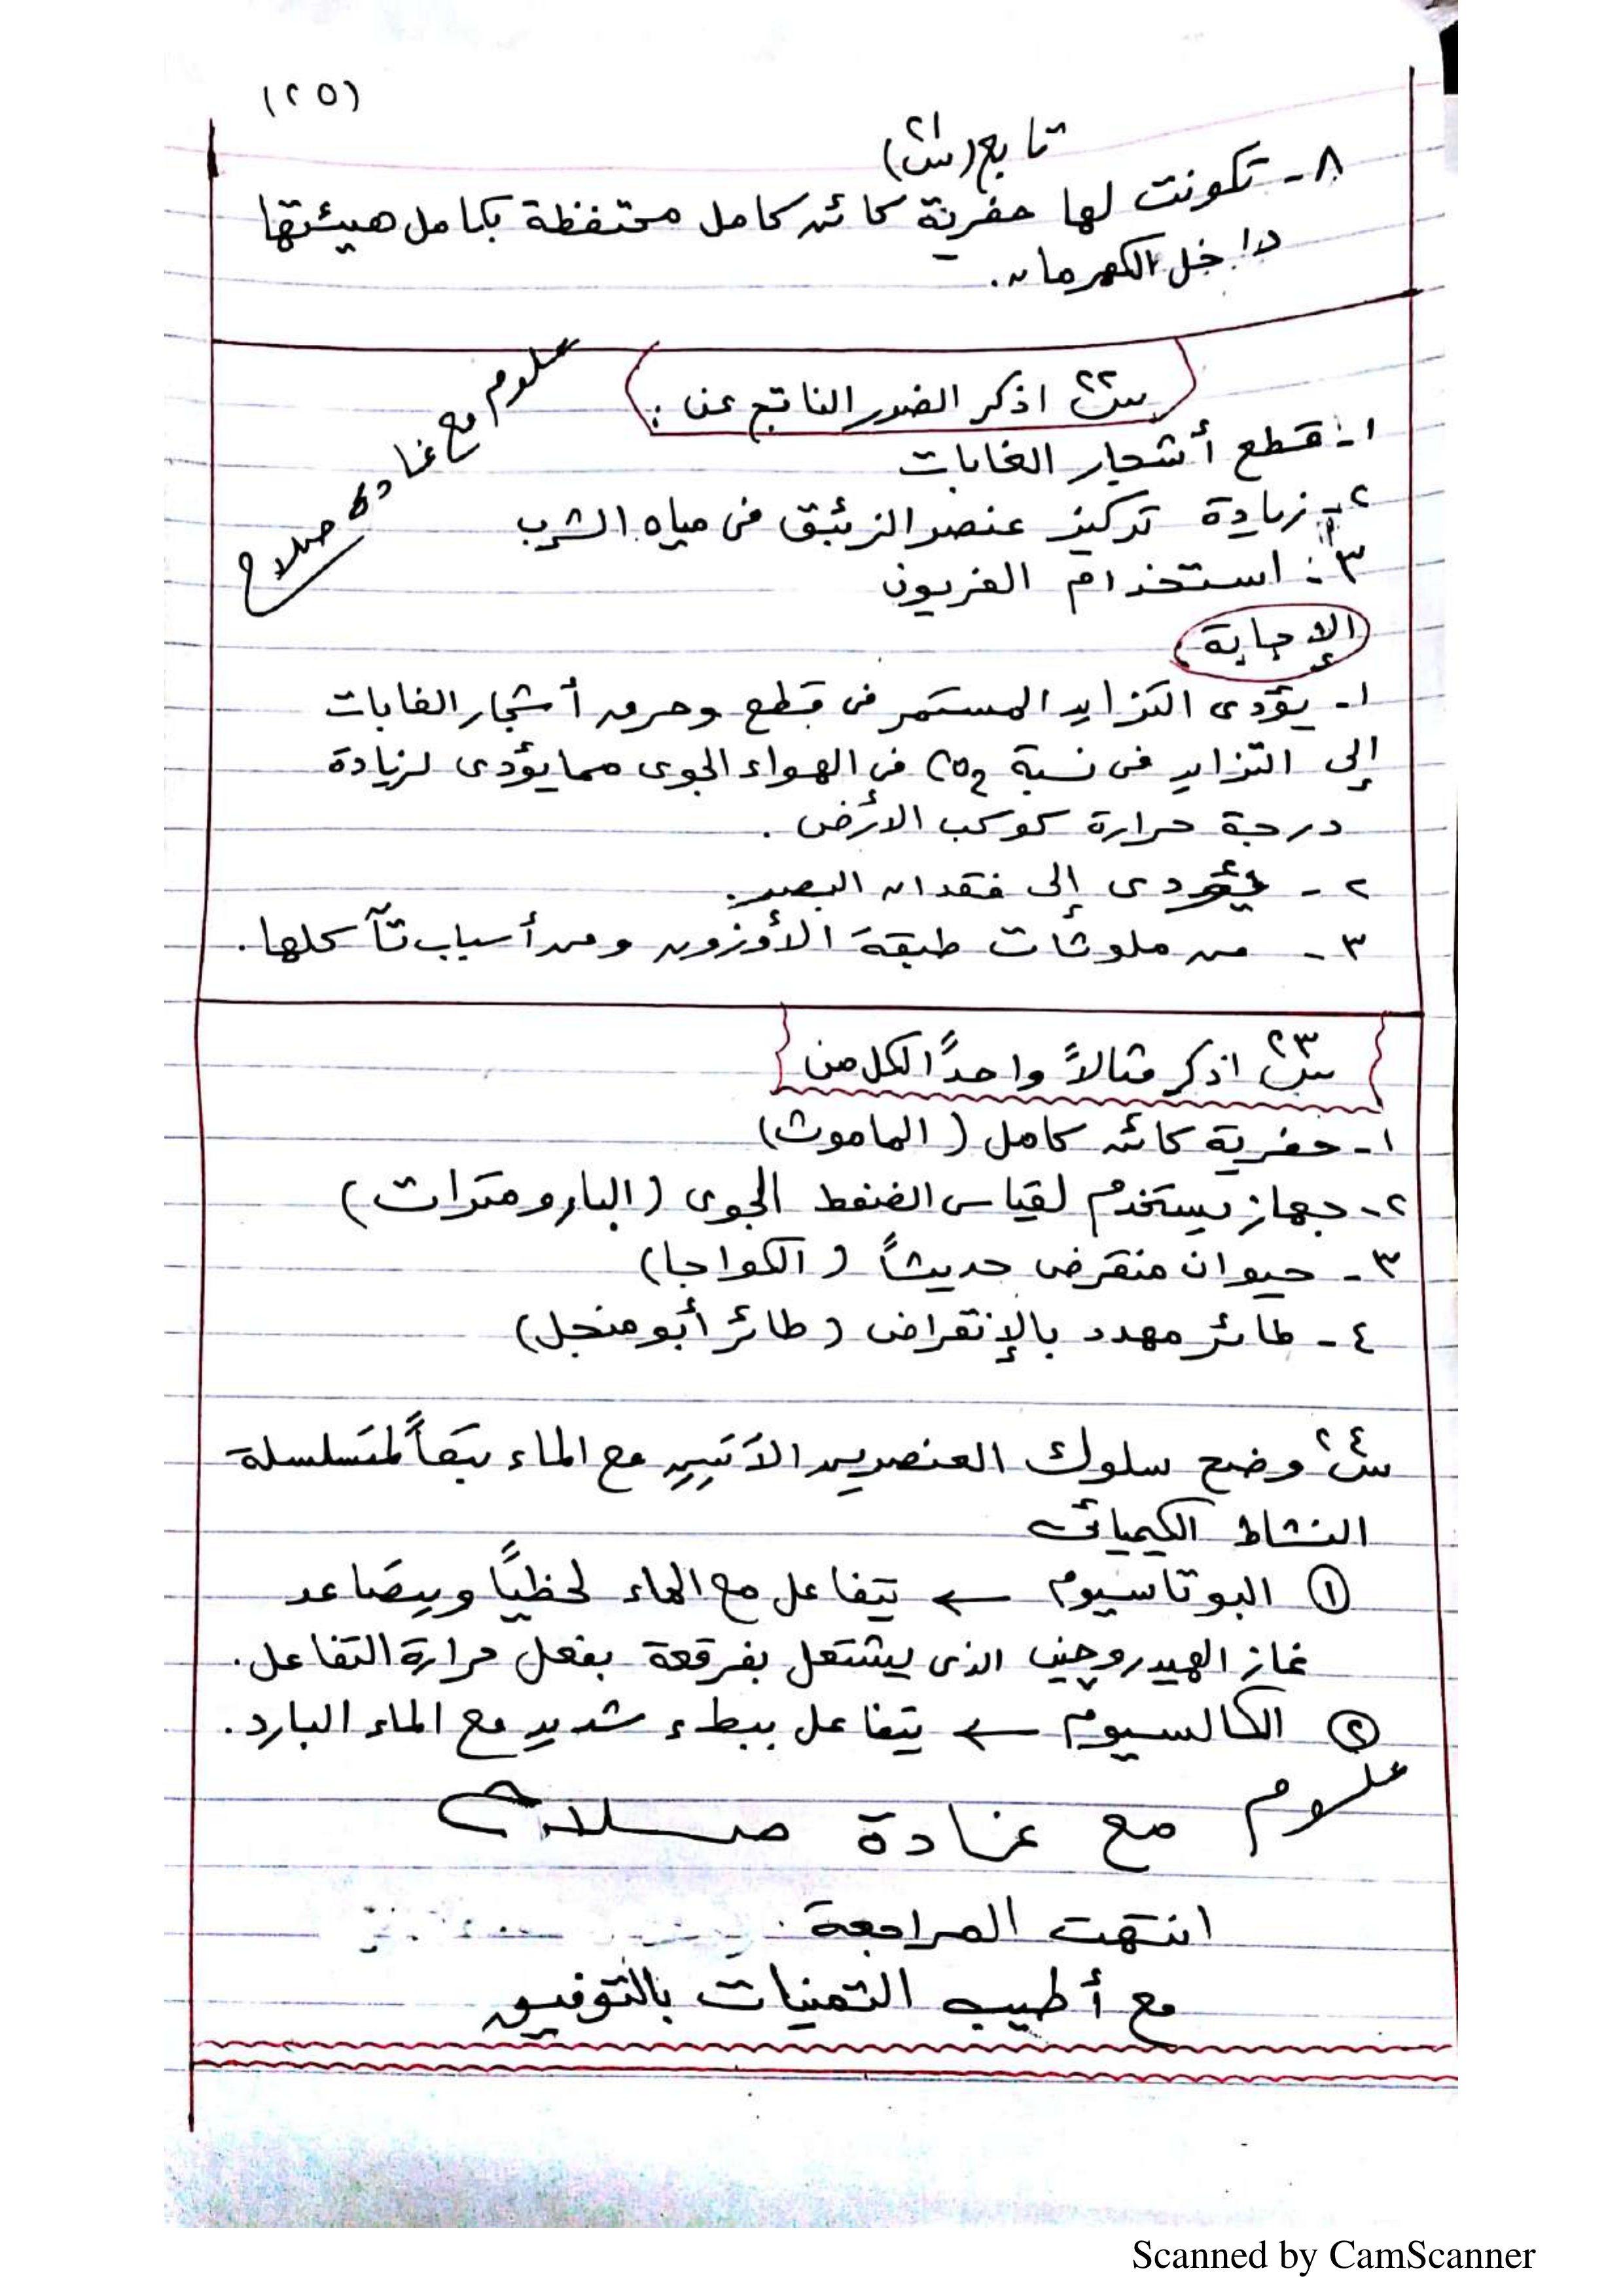 (٢٥)
تابع (س٢١)
٨- تكونت لها حفرية كائن كامل محتفظة بكامل هيئتها
داخل الكهرمان.
علوم مع غادة صلاح
س٢٢ اذكر الضرر الناتج عن :
١- قطع أشجار الغابات
٢- زيادة تركيز عنصر الزئبق فى مياه الشرب
٣- استخدام الفريون
الإجابة :
١- يؤدى التزايد المستمر فى قطع وحرق أشجار الغابات
إلى التزايد فى نسبة CO2 فى الهواء الجوى مما يؤدى لزيادة
درجة حرارة كوكب الأرض .
٢- يؤدى إلى فقدان البصر.
٣- من ملوثات طبقة الأوزون ومن أسباب تآكلها.
س٢٣ اذكر مثالاً واحداً لكل من
١- حفرية كائن كامل (الماموث)
٢- جهاز يستخدم لقياس الضغط الجوى (البارومترات)
٣- حيوان منقرض حديثاً (الكواجا)
٤- طائر مهدد بالإنقراض (طائر أبو منجل)
س٢٤ وضح سلوك العنصرين الآتيين مع الماء تبعاً لمتسلسلة
النشاط الكيميائى
① البوتاسيوم ← يتفاعل مع الماء لحظياً ويتصاعد
غاز الهيدروچين الذى يشتعل بفرقعة بفعل حرارة التفاعل.
② الكالسيوم ← يتفاعل ببطء شديد مع الماء البارد.
علوم مع غادة صلاح
انتهت المراجعة
مع أطيب التمنيات بالتوفيق
Scanned by CamScanner